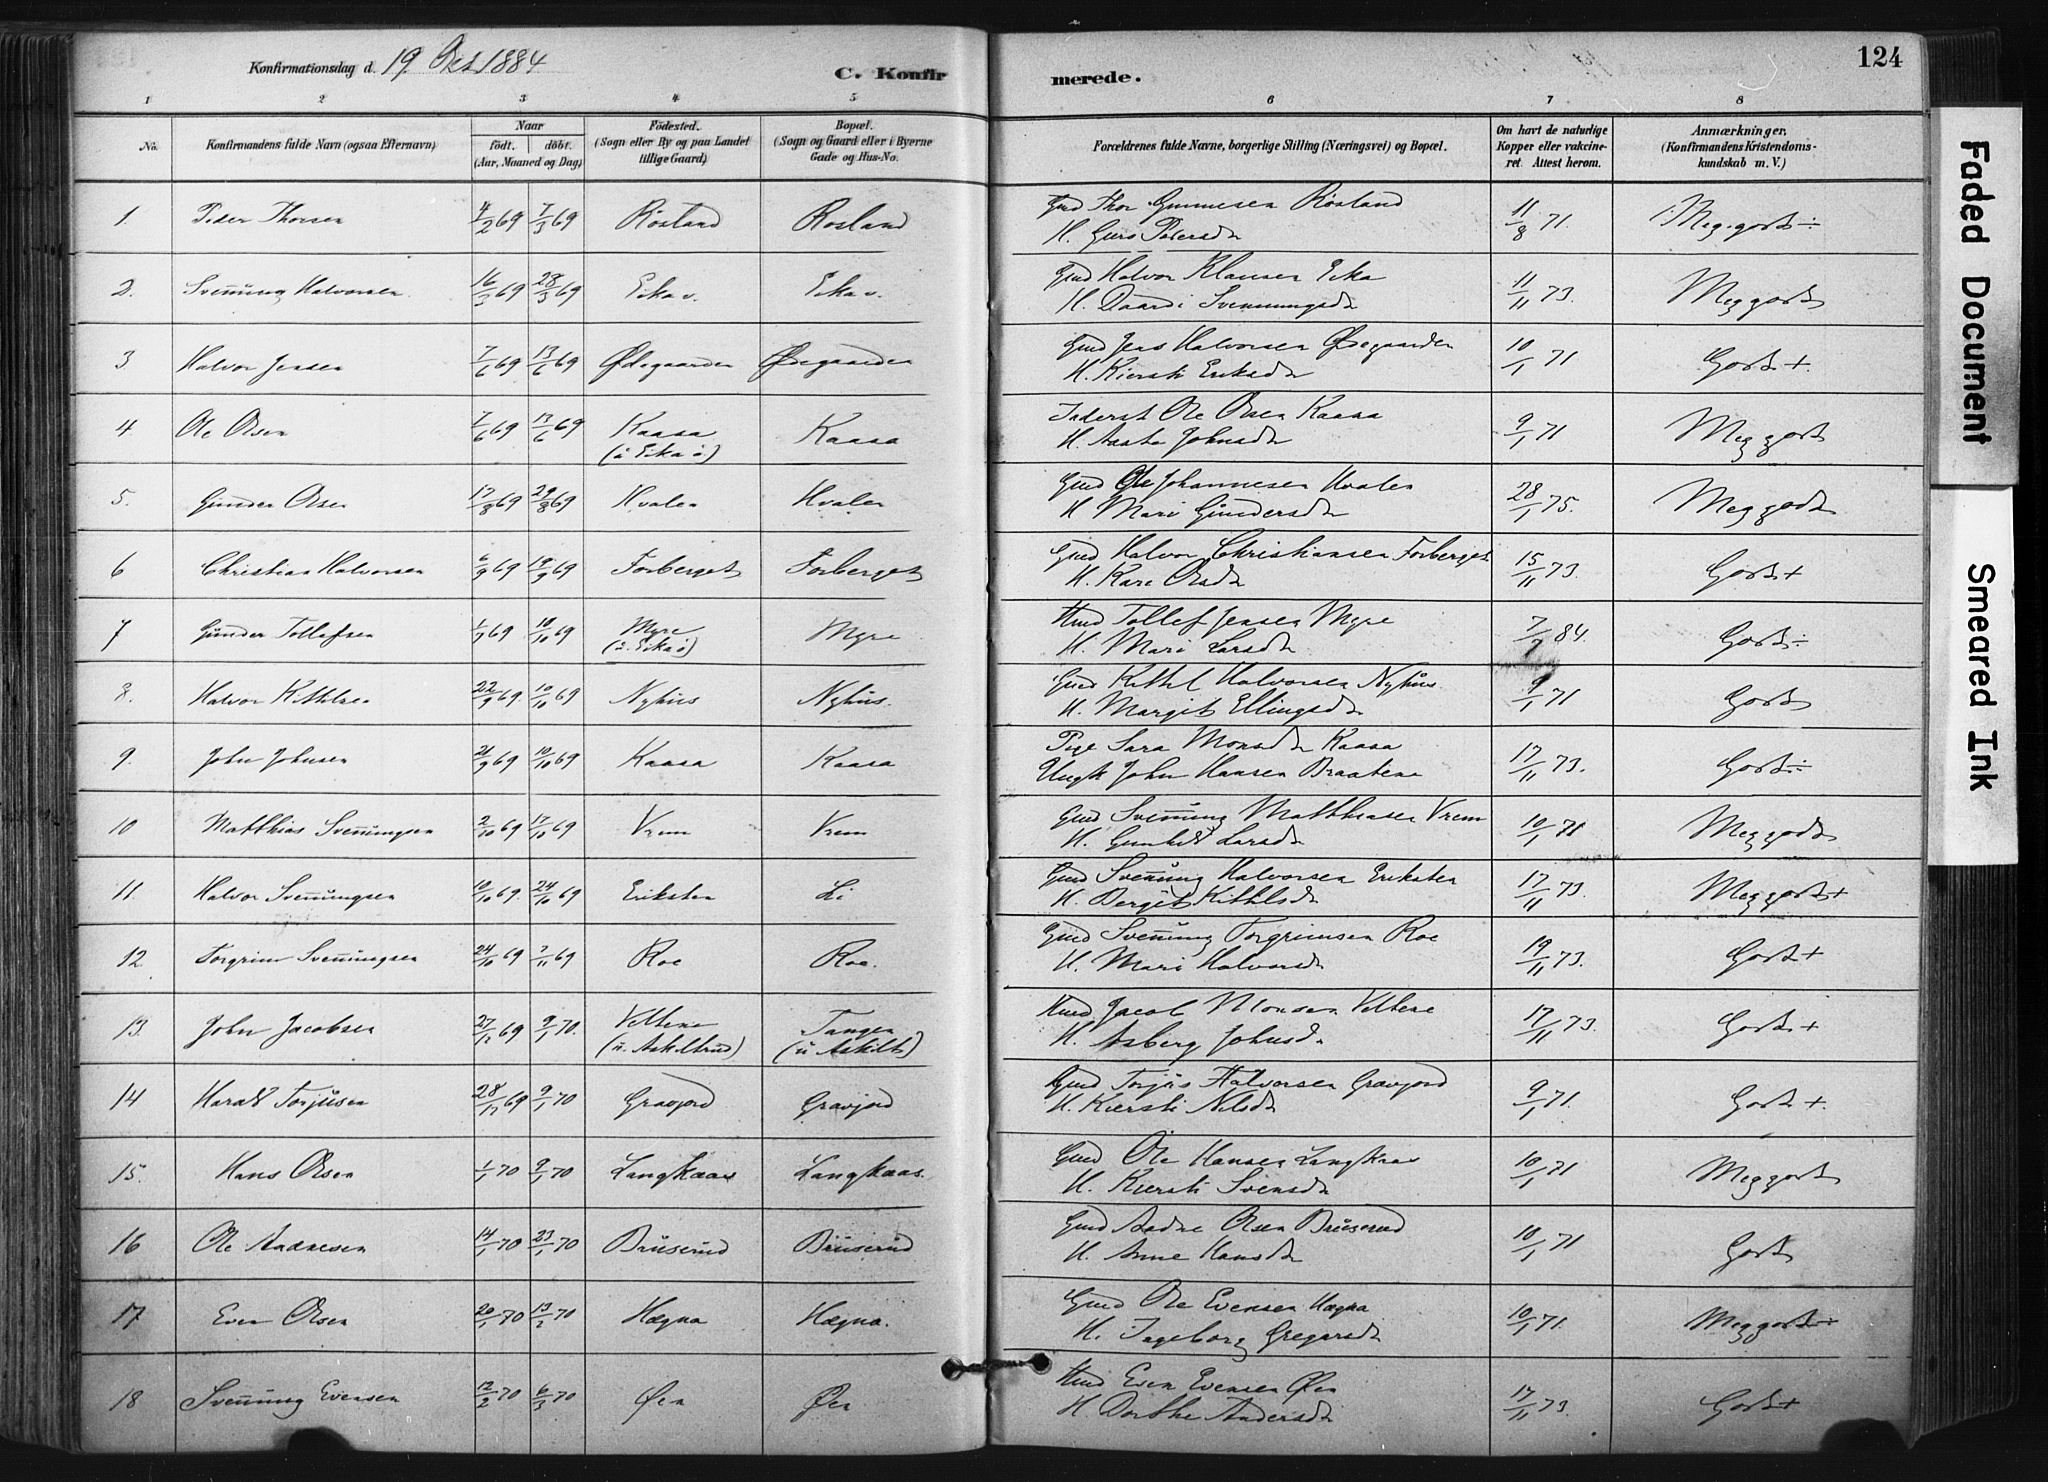 Konfirmationsdag d. 19 Oct 1884
C. Konfirmerede.
124
1 2 3 4 5 6 7 8
No.
Konfirmandens fulde Navn (ogsaa Efternavn)
Naar
født. døbt.
(Aar, Maaned og Dag)
Fødested.
(Sogn eller By og paa Landet
tillige Gaard)
Bopæl.
(Sogn og Gaard eller i Byerne
Gade og Hus-No.
Forældrenes fulde Navne, borgerlige Stilling (Næringsvei) og Bopæl.
Om havt de naturlige
Kopper eller vakcine-
ret. Attest herom.
Anmærkninger.
(Konfirmandens Kristendoms-
kundskab m. V.)
1. Peder Thorsen 4/2 69 7/3 69 Røsland Rosland Gmd Thor Gunnesen Røsland 11/8 71. Meg. godt ÷
H. Guro Pedersd
2. Svenung Halvorsen 16/2 69 28/3 69 Eika v. Eika v. Gmd Halvor Klausen Eika 11/11 73. Meg godt
H. Daardi Svennungsd
3 Halvor Jensen 7/6 69 13/6 69 Ødegaarden Ødegaarden Gmd Jens Halvorsen Ødegaarden 10/1 71 Godt +.
H. Kiersti Eriksd
4 Ole Olsen 7/6 69 13/6 69 Kaasa Kaasa Inderst Ole Olsen Kaasa 9/1 71 Meg godt
(u Eika ö) H. Aaste Johnsd
5. Gunder Olsen 17/8 69 29/8 69 Hvalen Hvalen Gmd Ole Johannesen Hvalen 28/1 75. Meg godt
H Mari Gundersd
6 Christian Halvorsen 6/9 69 19/9 69 Forberget Forberget Gmd Halvor Christiansen Forberget 15/11 73. Godt +
H. Kari Olsd
7 Gunder Tollefsen 1/7 69 10/10 69 Myre Myre Hmd Tollef Jensen Myre 7/9 84. Godt ÷
(u. Eika ö) H. Mari Larsd
8. Halvor Kittilsen 22/9 69. 10/10 69 Nyhus Nyhus. Gmd Kittil Halvorsen Nyhus 9/1 71 Godt
H. Margit Ellingsd
9. John Johnsen 21/9 69 10/10 69 Kaasa Kaasa Pige Sara Monsd Kaasa 17/11 73. Godt ÷
Ungk John Hansen Braatene
10 Matthias Svenungsen 2/10 69 17/10 69 Vrem Vrem Gmd Svenung Matthiasen Vrem 10/1 71 Meg godt
H. Gunhild Larsd
11. Halvor Svenungsen 10/10 69. 24/10 69 Eriksten Li Gmd Svenung Halvorsen Eriksten 17/11 73. Meg godt +
H. Bergit Kittilsd
12. Torgrim Svenungsen 24/10 69 7/11 69 Roe Roe. Gmd Svenung Torgrimsen Roe 19/11 73. Godt +
H. Mari Halvorsd
13. John Jacobsen 27/12 69 9/1 70. Veltene Tangen Hmd Jacob Monsen Veltene 17/11 73. Godt +
(u. Askiltrud) (u Askilts) H. Asberg Johnsd.
14 Harald Torjusen 28/12 69 9/1 70 Gravjord Gravjord Gmd Torjus Halvorsen Gravjord 9/1 71. Godt +.
H. Kiersti Nilsd
15. Hans Olsen 1/1 70 9/1 70 Langkaas Langkaas. Gmd Ole Hansen Langkaas 10/1 71 Meg godt
H. Kiersti Svensd
16 Ole Aadnesen 14/1 70 23/1 70 Bruserud Bruserud Gmd Aadne Olsen Bruserud 10/1 71 Godt
H. Anne Hansd
17 Even Olsen 20/1 70 13/2 70 Hægna Hægna. Gmd Ole Evensen Hægna 10/1 71. Meg godt +
H. Ingeborg Gregersd
18 Svenung Evensen 12/2 70 6/3 70 Øen Øen Hmd Even Evensen Øen 17/11 73. Godt +
H Dorthe Andersd
Faded Document
Smeared Ink